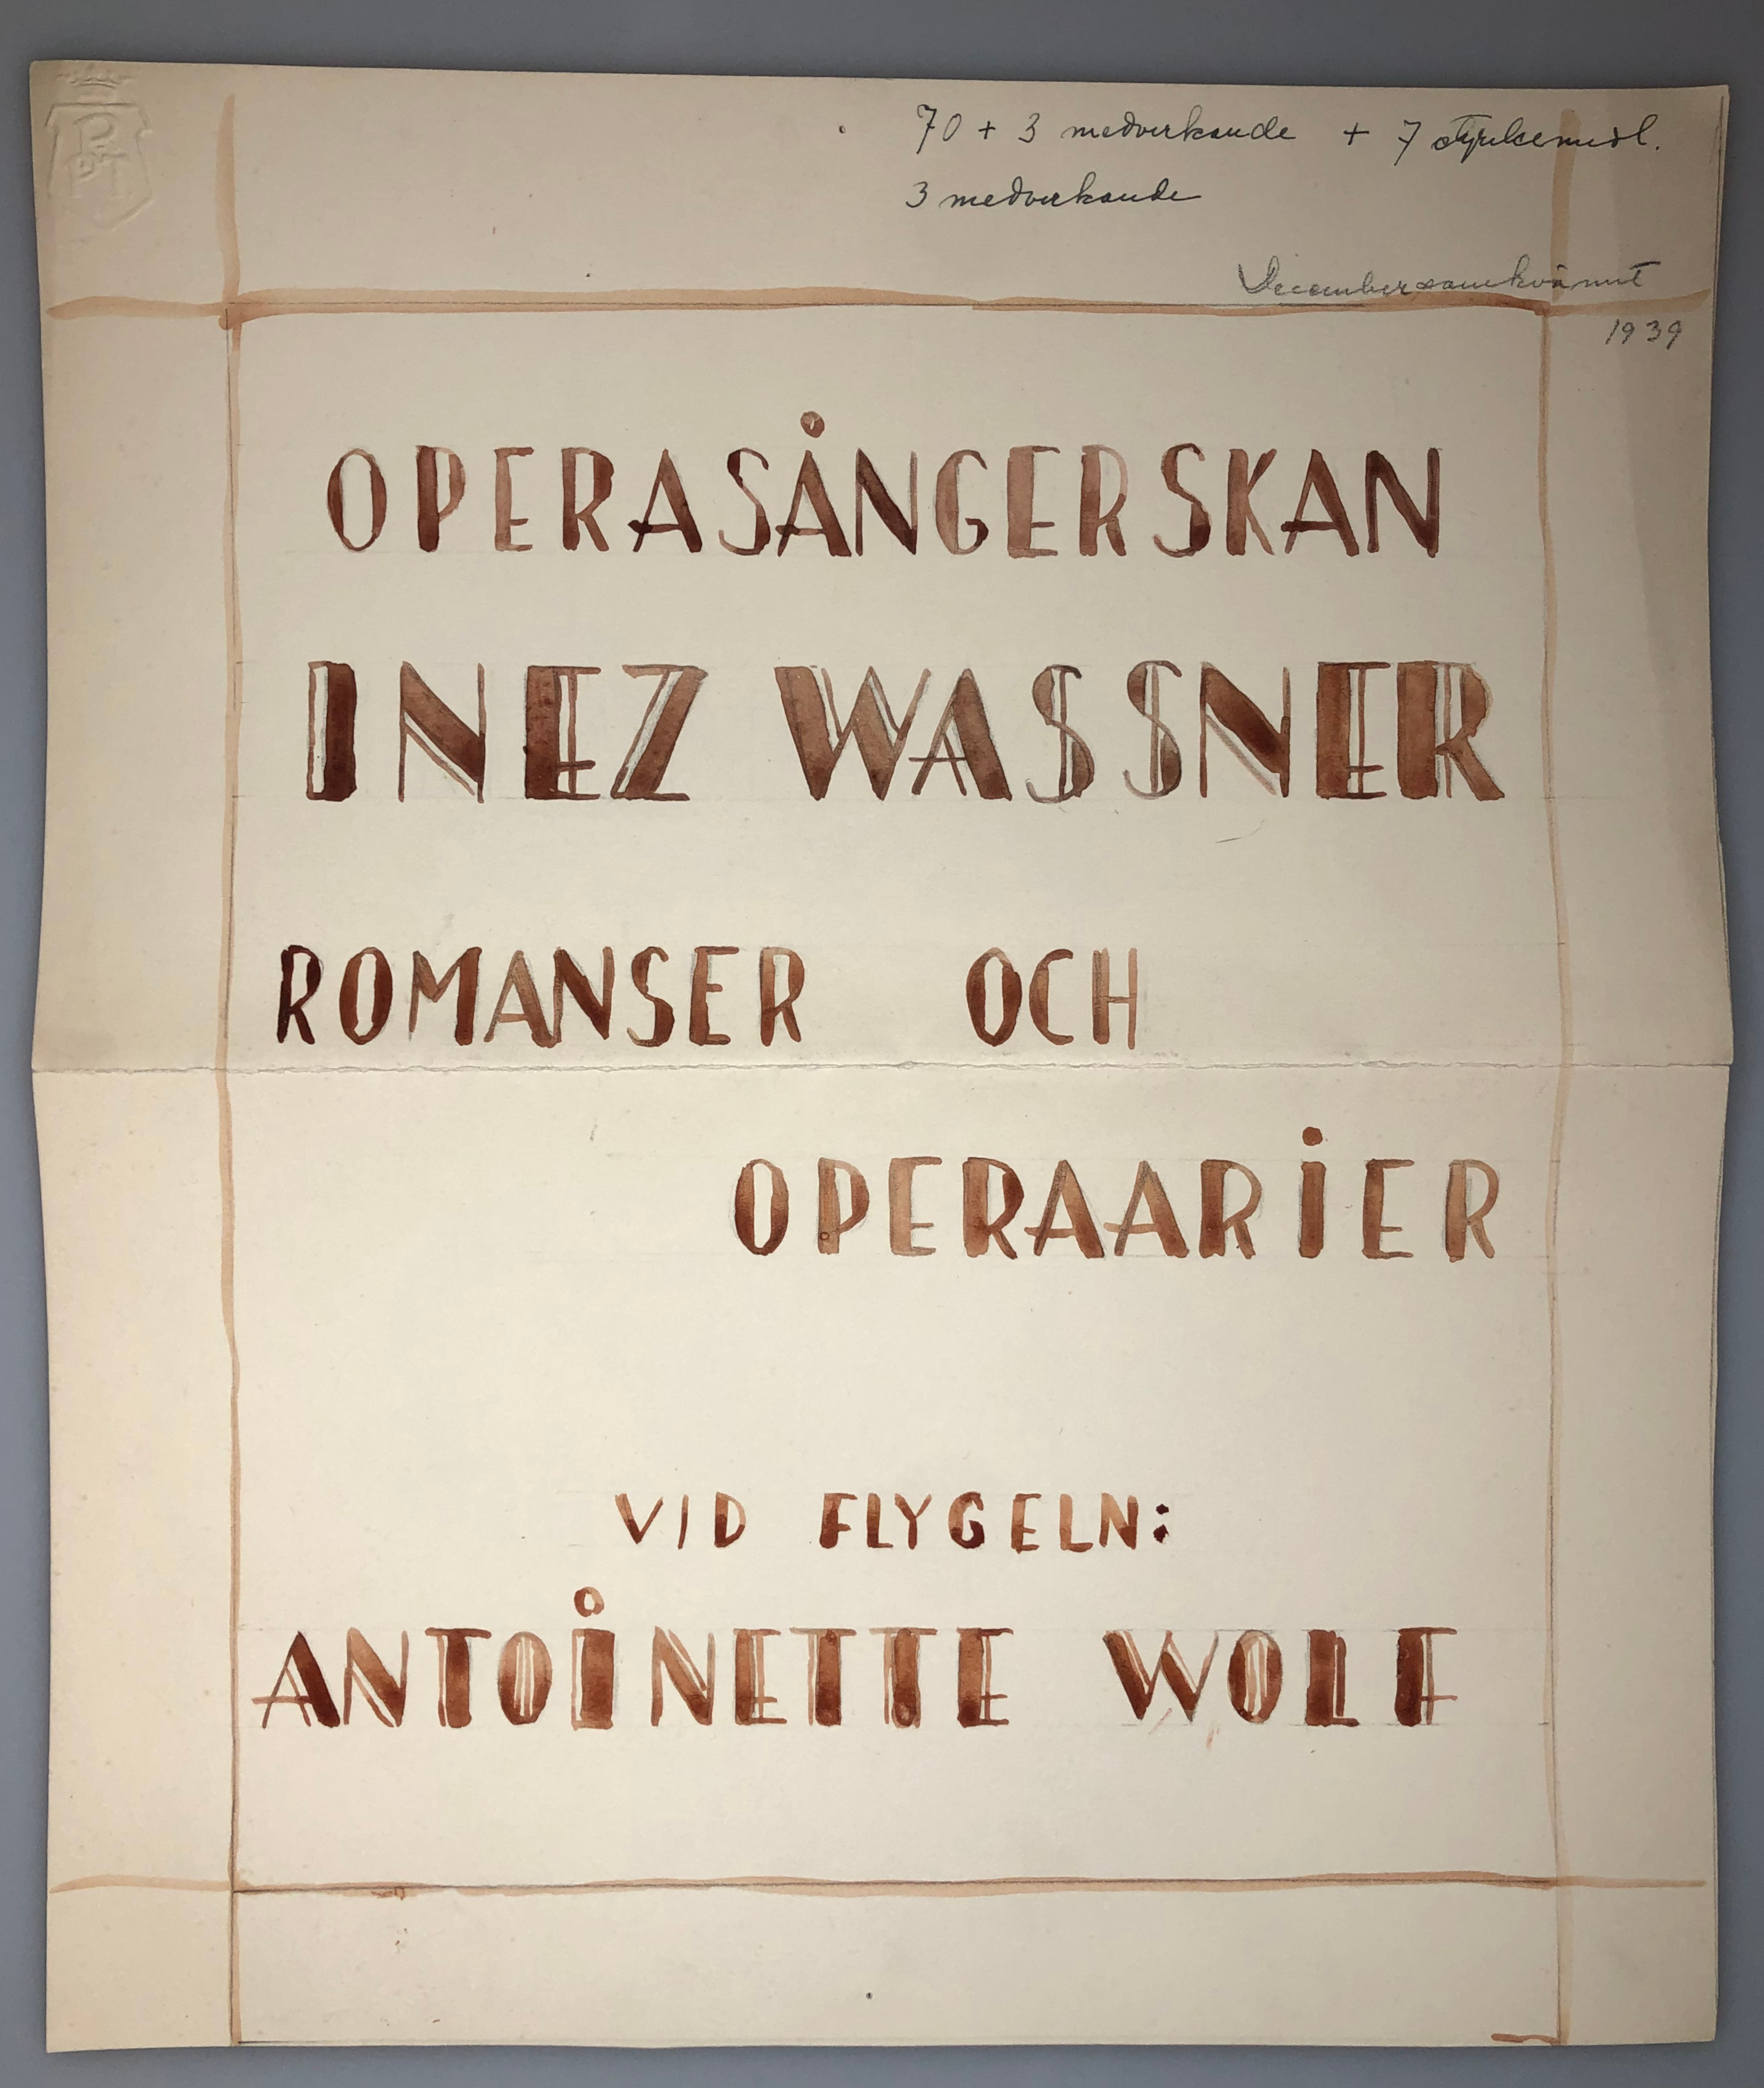 70 + 3 medverkande + 7 styrkemedl.
3 medverkande
Decembersamkvämt
1939
OPERASÅNGERSKAN
INEZ WASSNER
ROMANSER OCH
OPERAARiER
VID FLYGELN:
ANTOiNETTE WOLF